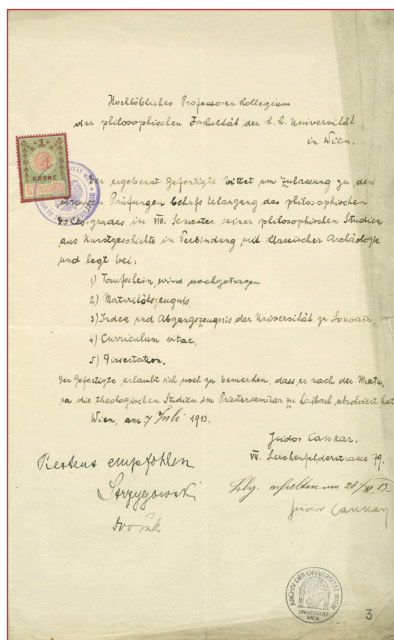 Hochlöbliches Professoren Kollegium
der philosophischen Fakultät der k. k. Universität
in Wien.
1
KRONE
Der ergebenst Gefertigte bittet um Zulassung zu den
strengen Prüfungen behufs Erlangung des philosophischen
grades im VIII. Semester seiner philosophischen Studien
aus Kunstgeschichte in Verbindung mit klassischer Archäologie
und legt bei:
1) Taufschein, wird nachgetragen
2) Maturitätszeugnis,
3) Index und Abgangszeugnis der Universität zu Louvain,
4) Curriculum vitae,
5) Dissertation.
Der Gefertigte erlaubt sich noch zu bemerken, dass er nach der Matu-
ra die theologischen Studien im Priesterseminar zu Laibach absolviert hat.
Wien, am 7 Juli 1913.
Izidor Cankar.
VII. Lerchenfelderstrasse 79.
Bestens empfohlen
Strzygowski
Dvořák
erhalten am
Izidor Cankar
ARCHIV DER UNIVERSITÄT WIEN
UNIVERSITÄT
WIEN
3